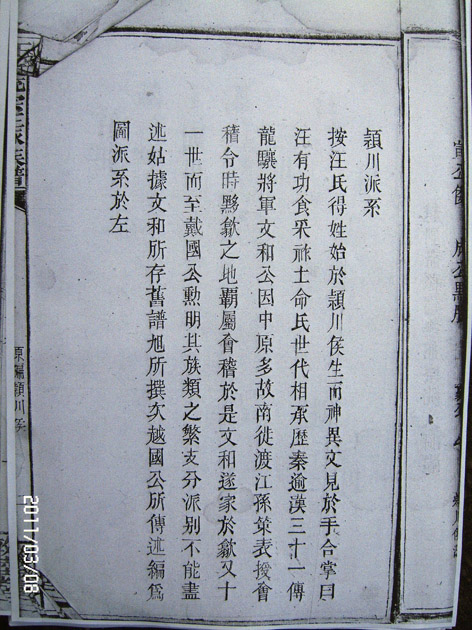 頴川派系
按汪氏得姓始於頴川侯生而神異文見於手合掌曰
汪有功食采祚土命氏世代相承歷秦逾漢三十一傳
龍驤將軍文和公因中原多故南徙渡江孫策表授會
稽令時黟歙之地覇屬會稽於是文和遂家於歙又十
一世而至戴國公勲明其族類之繁支分派別不能盡
述姑據文和所存舊譜旭所撰次越國公所傳述編為
圖派系於左
2011/03/08